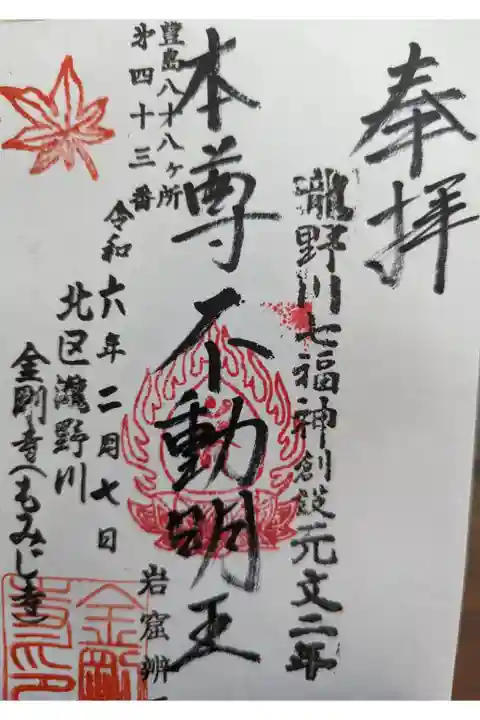 奉拝
瀧野川七福神創設元文二年
本尊不動明王
岩窟辨
豊島八十八ヶ所
第四十三番
令和六年二月七日
北区瀧野川
金剛寺(もみじ寺)
金剛
寺印